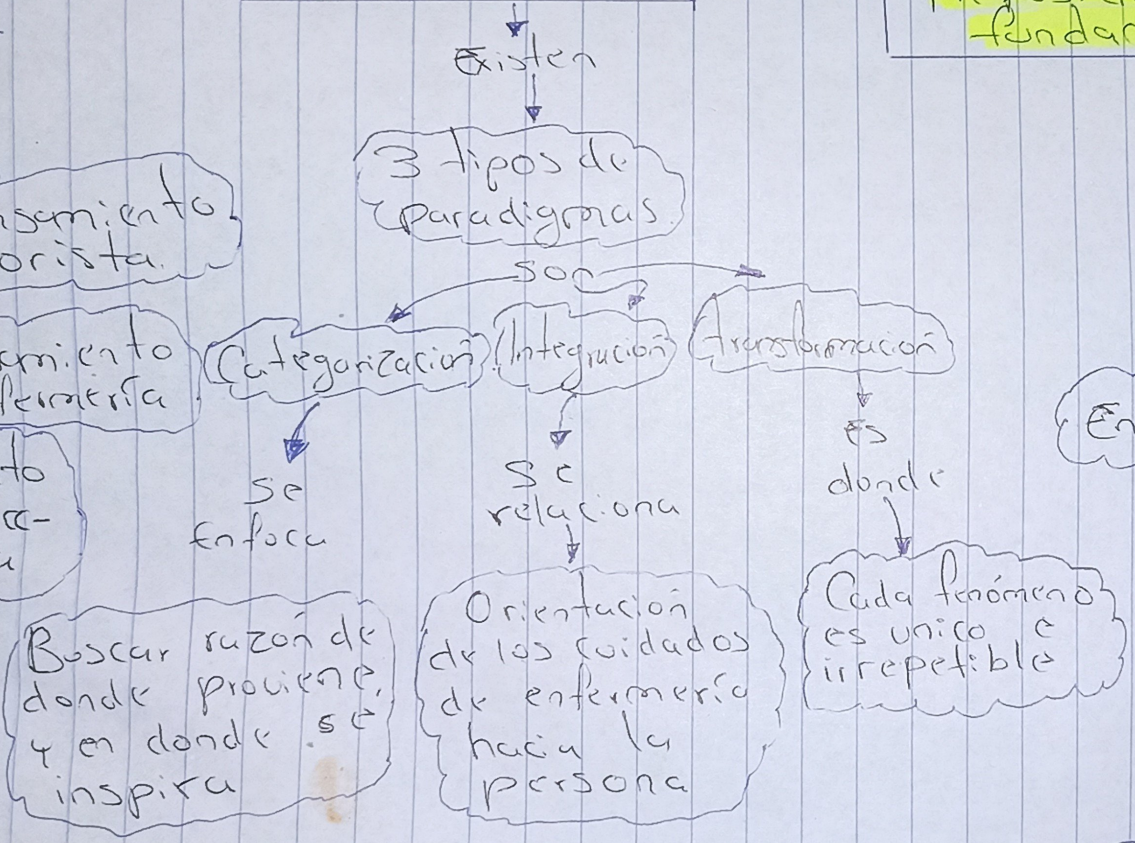 fundar
Existen
3 tipos de
paradigmas
nsamiento
orista.
son
amiento
fermería
Categorización
Integración
transformación
En
to
cc-
a
Se
Enfoca
Se
relaciona
es
donde
Buscar razon de
donde proviene,
y en donde se
inspira
Orientación
de los cuidados
de enfermería
hacia la
persona
Cada fenómeno
es unico e
irrepetible